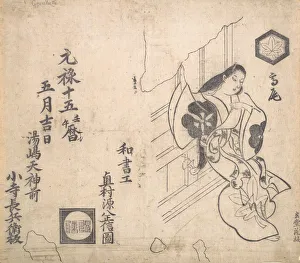 高尾
和書工
奥村源八政信圖
元禄十五壬午暦
五月吉日
湯嶋天神前
小寺長兵衛板